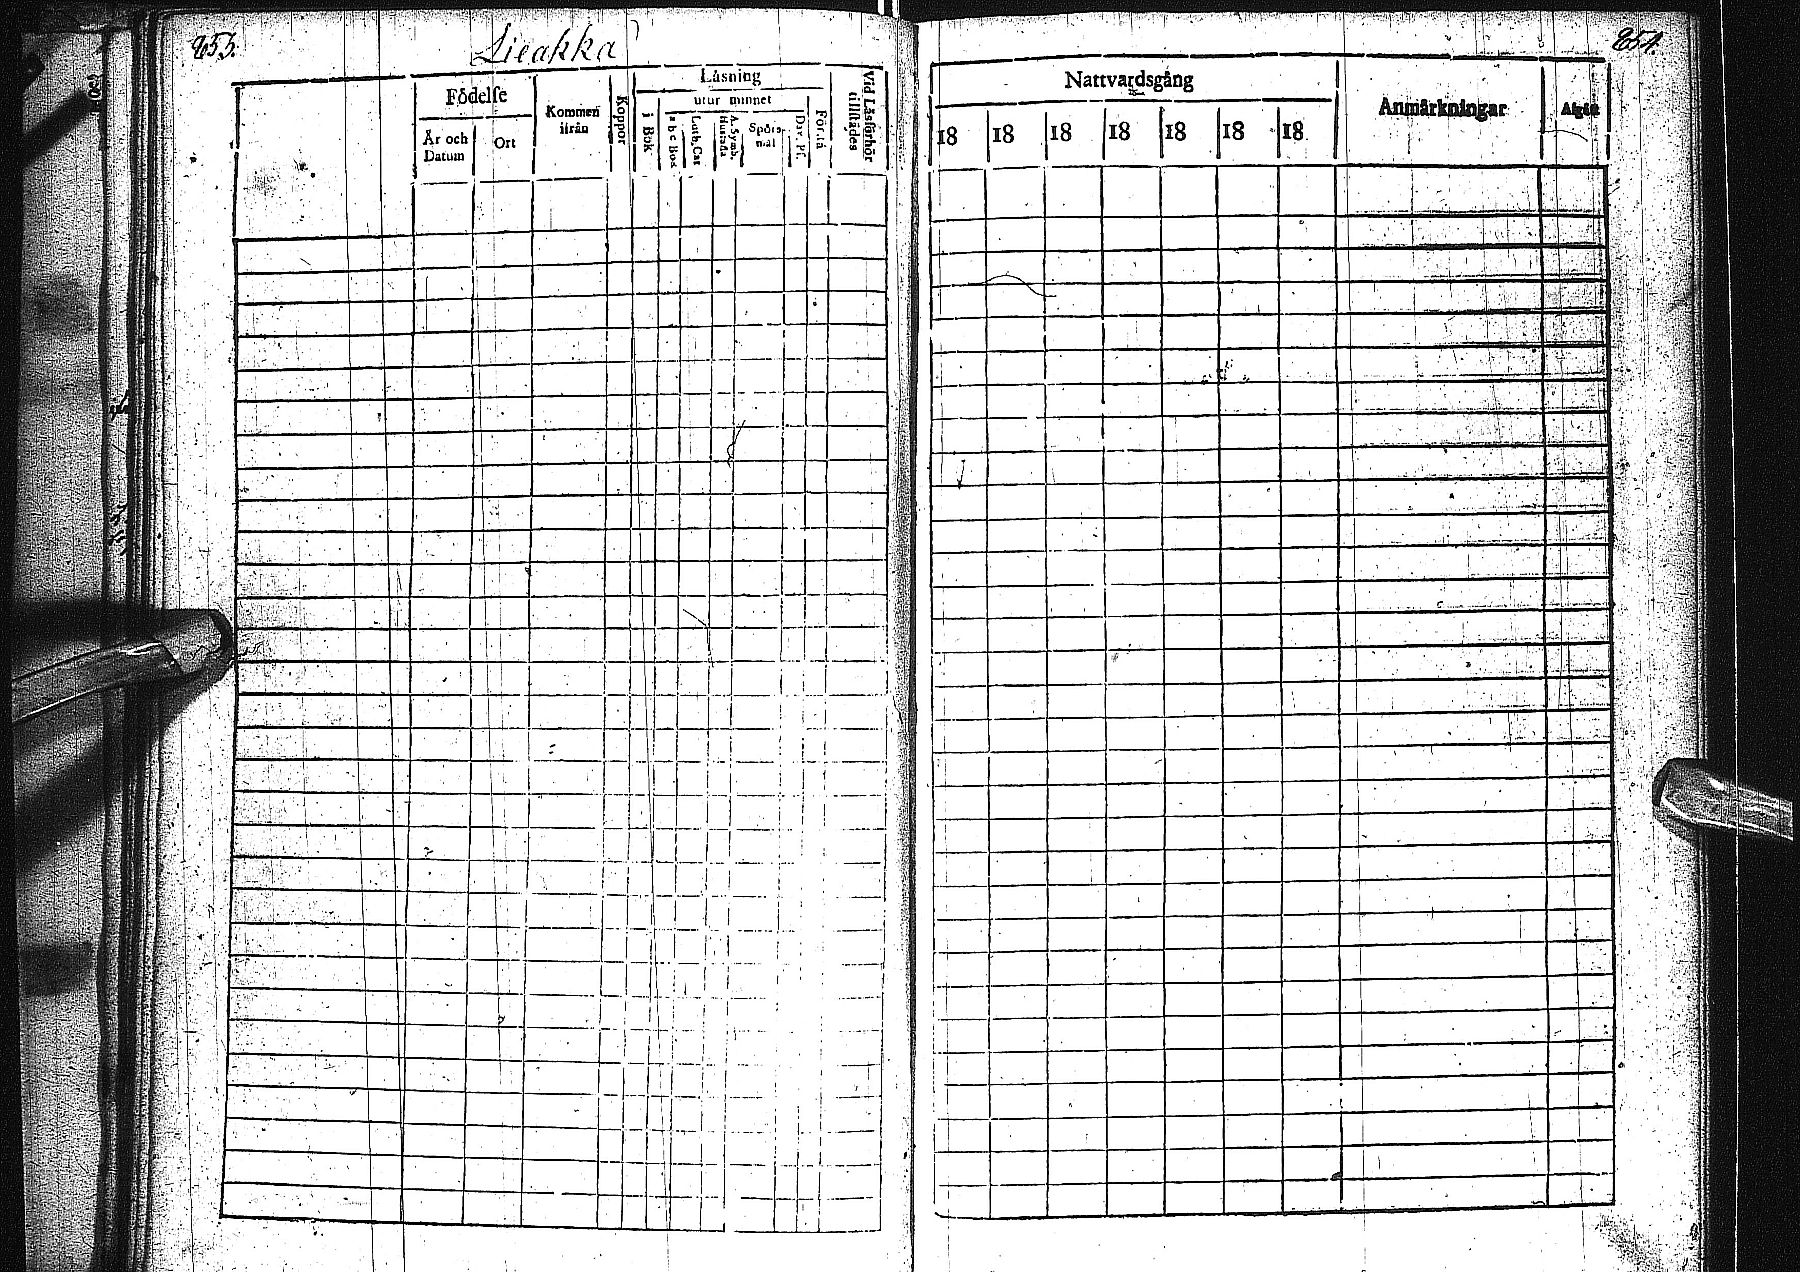 253.
Lieakka
Födelse
År och
Datum
Ort
Kommen
ifrån
Koppor
Läsning
i Bok
utur minnet
a b c Bok
Luth. Cat
A. Symb.
Hustafla
Spörs-
mål
Dav. Ps.
Förstå
Vid Läsförhör
tillstädes
254.
Nattvardsgång
18 18 18 18 18 18 18
Anmärkningar
Afgått